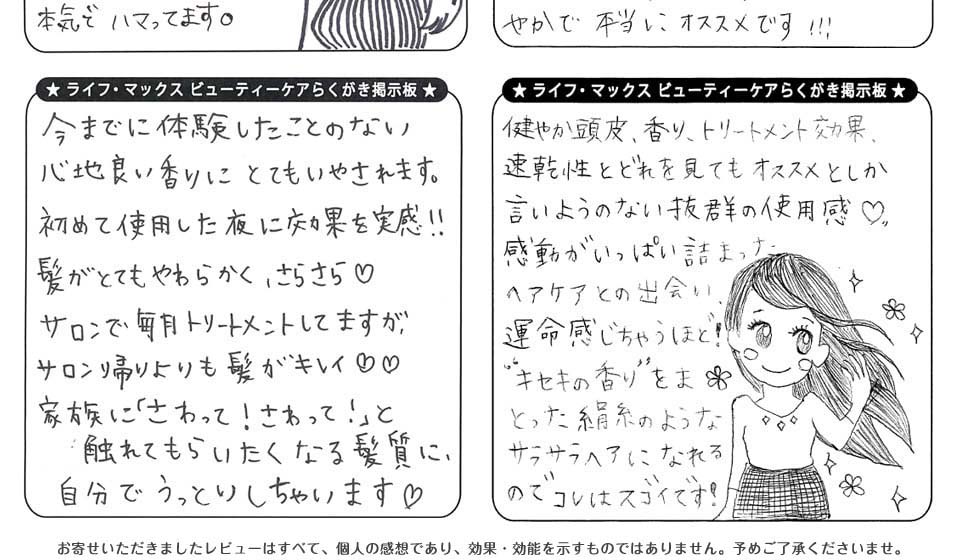 本気で ハマってます。
やかで 本当に オススメです!!!
★ ライフ・マックス ビューティーケアらくがき掲示板 ★
今までに体験したことのない
心地良い香りに とてもいやされます。
初めて使用した夜に効果を実感!!
髪がとてもやわらかく、さらさら♡
サロンで毎月トリートメントしてますが、
サロン帰りよりも髪がキレイ♡♡
家族に「さわって!さわって!」と
触れてもらいたくなる髪質に、
自分でうっとりしちゃいます♡
★ ライフ・マックス ビューティーケアらくがき掲示板 ★
健やか頭皮、香り、トリートメント効果、
速乾性とどれを見てもオススメとしか
言いようのない抜群の使用感♡。
感動がいっぱい詰まった
ヘアケアとの出会い、
運命感じちゃうほど!
"キセキの香り"をま
とった絹糸のような
サラサラヘアになれる
のでコレはスゴイです!
お寄せいただきましたレビューはすべて、個人の感想であり、効果・効能を示すものではありません。予めご了承くださいませ。